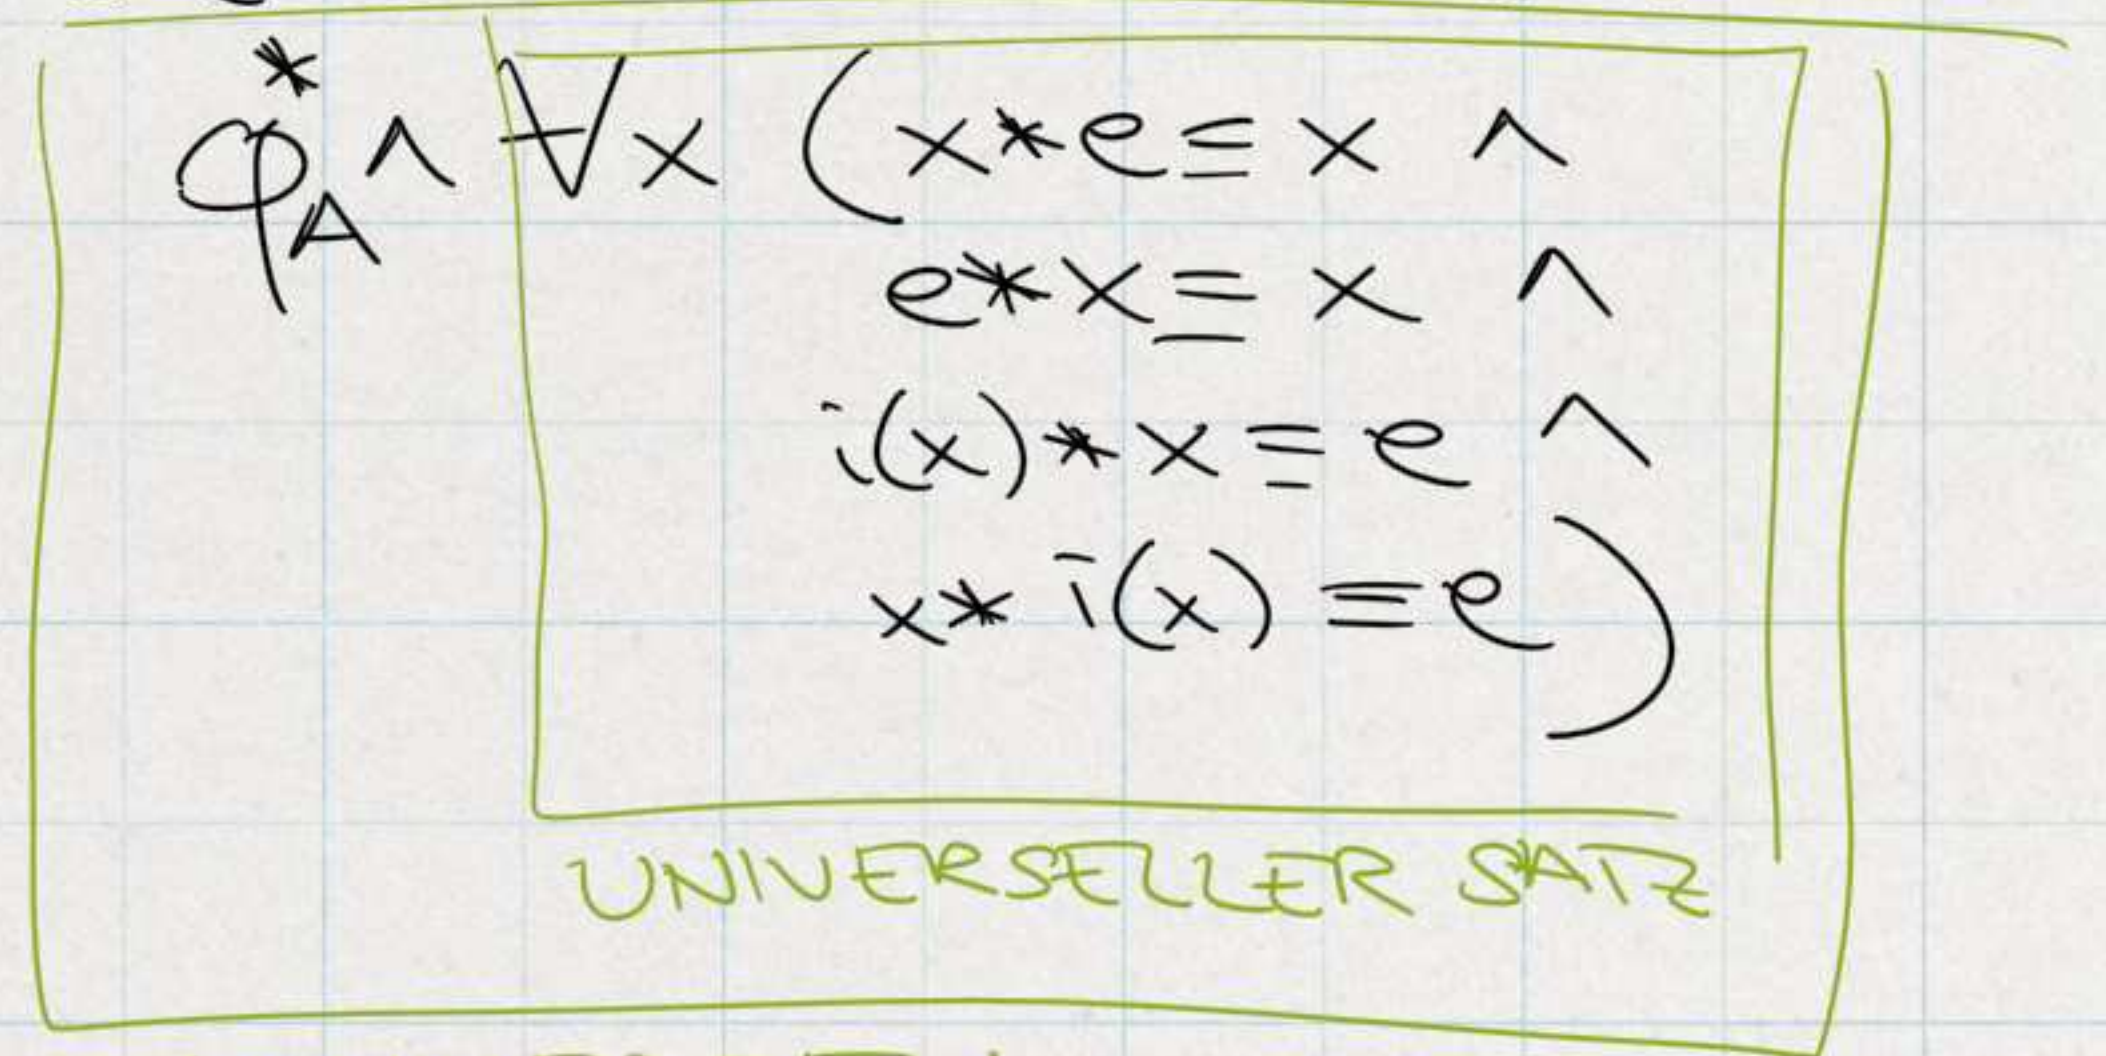 φ*_A ∧ ∀x (x*e ≡ x ∧
e*x ≡ x ∧
i(x)*x ≡ e ∧
x*i(x) ≡ e)
UNIVERSELLER SATZ